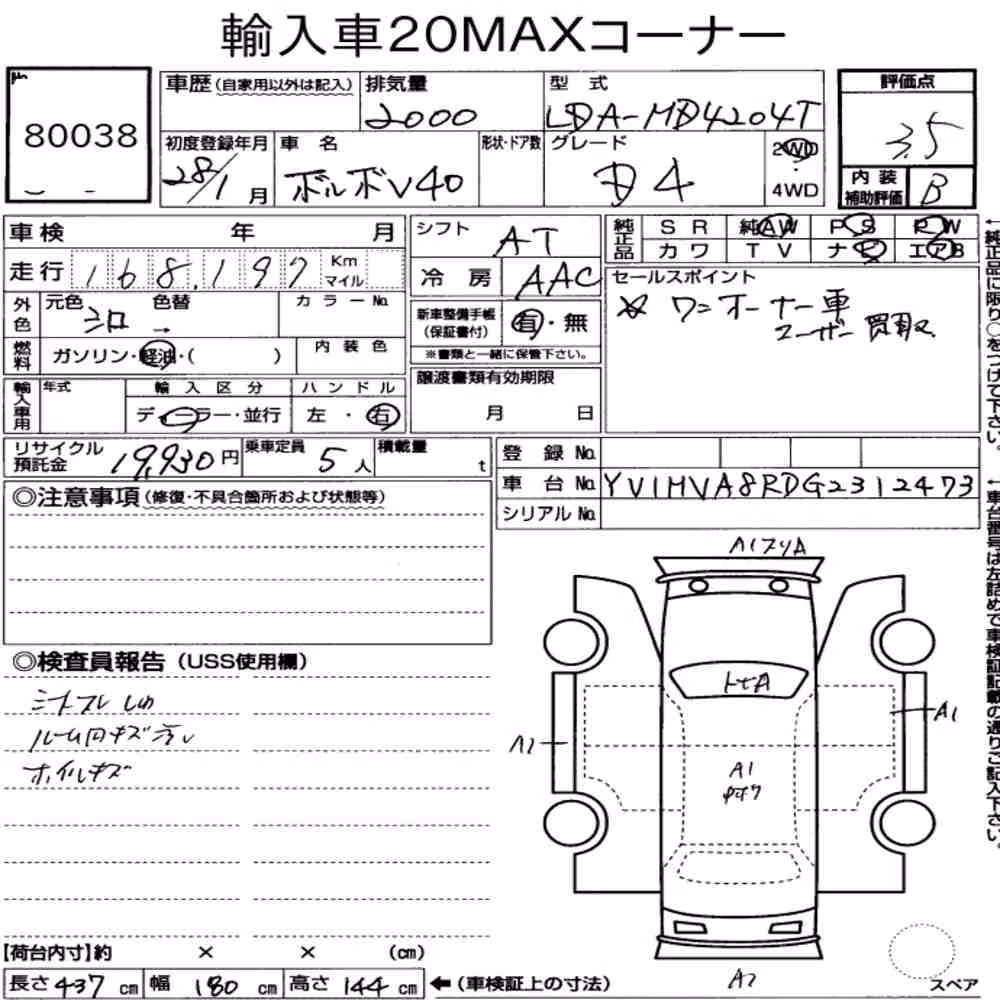 輸入車20MAXコーナー
80038
車歴(自家用以外は記入) 排気量 型式 評価点
2000 LDA-MD4204T 3.5
初度登録年月 車名 形状・ドア数 グレード 2WD
28/1月 ボルボV40 D4 4WD
内装補助評価 B
車検 年 月 シフト AT
走行 168,197 Km マイル 冷房 AAC
純正品 SR 純AW PS PW
カワ TV ナビ エアB
外色 元色 シロ 色替 → カラーNo.
燃料 ガソリン・軽油・( ) 内装色
新車整備手帳(保証書付) 有・無
※書類と一緒に保管下さい。
セールスポイント
☆ ワンオーナー車
ユーザー買取
輸入車用 年式 輸入区分 ハンドル
ディーラー・並行 左・右
譲渡書類有効期限
月 日
リサイクル預託金 19,930円 乗車定員 5人 積載量 t
登録No.
車台No. YV1MVA8RDG2312473
シリアルNo.
◎注意事項(修復・不具合箇所および状態等)
◎検査員報告(USS使用欄)
シートスレ しみ
ルーム内キズ
ホイルキズ
A1
トビA
A1
A1
A1
A2
【荷台内寸】約 × × (cm)
長さ437cm 幅180cm 高さ144cm ←(車検証上の寸法)
スペア
←純正品に限り○をつけて下さい。
←車台番号は左詰めで車検証記載の通りご記入下さい。